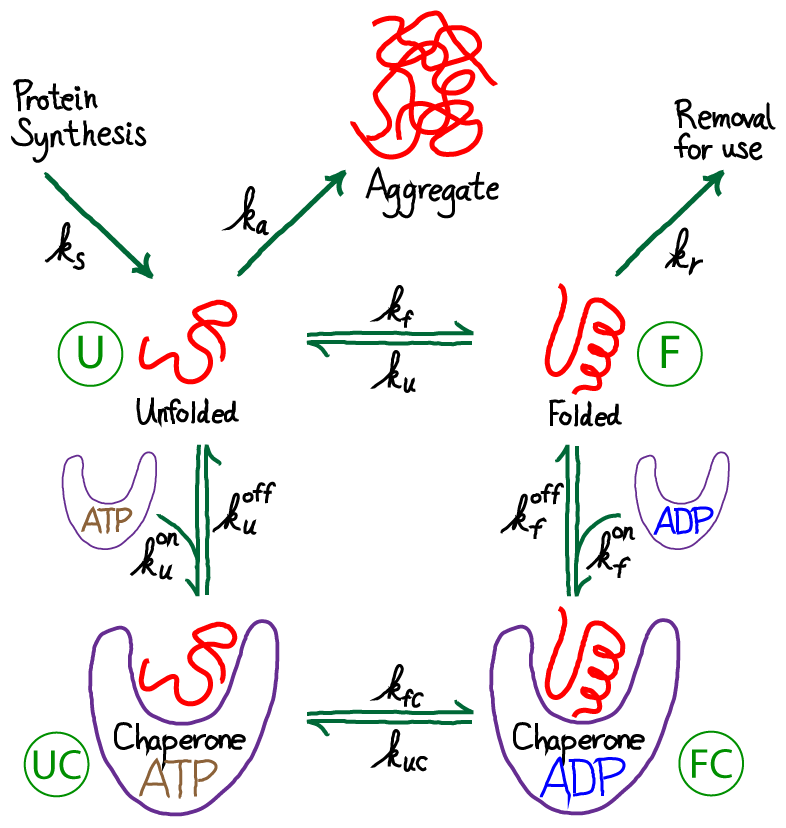 Protein
Synthesis
k_s
k_a
Aggregate
Removal
for use
k_r
U
k_f
k_u
F
Unfolded
Folded
ATP
k_u^on
k_u^off
k_f^off
k_f^on
ADP
k_fc
k_uc
Chaperone
ATP
UC
Chaperone
ADP
FC